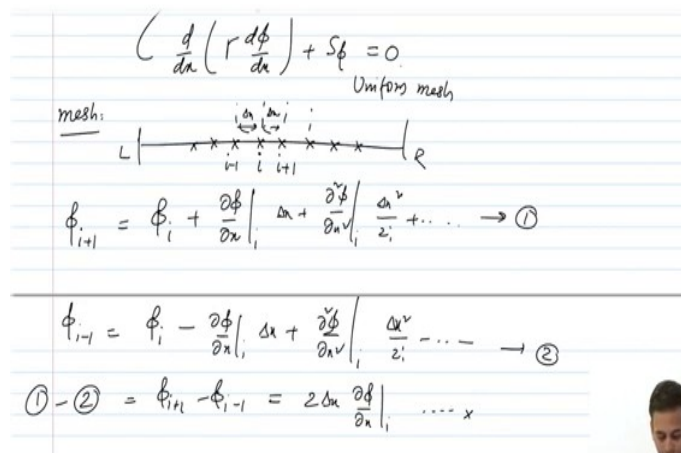 ( d/dx ( Γ dϕ/dx ) + Sϕ = 0.
Uniform mesh
mesh:
Δx Δx
L R
i-1 i i+1
ϕ_{i+1} = ϕ_i + ∂ϕ/∂x|_i Δx + ∂²ϕ/∂x²|_i Δx²/2! + ..... → ①
ϕ_{i-1} = ϕ_i - ∂ϕ/∂x|_i Δx + ∂²ϕ/∂x²|_i Δx²/2! - ---- → ②
① - ② = ϕ_{i+1} - ϕ_{i-1} = 2Δx ∂ϕ/∂x|_i ....